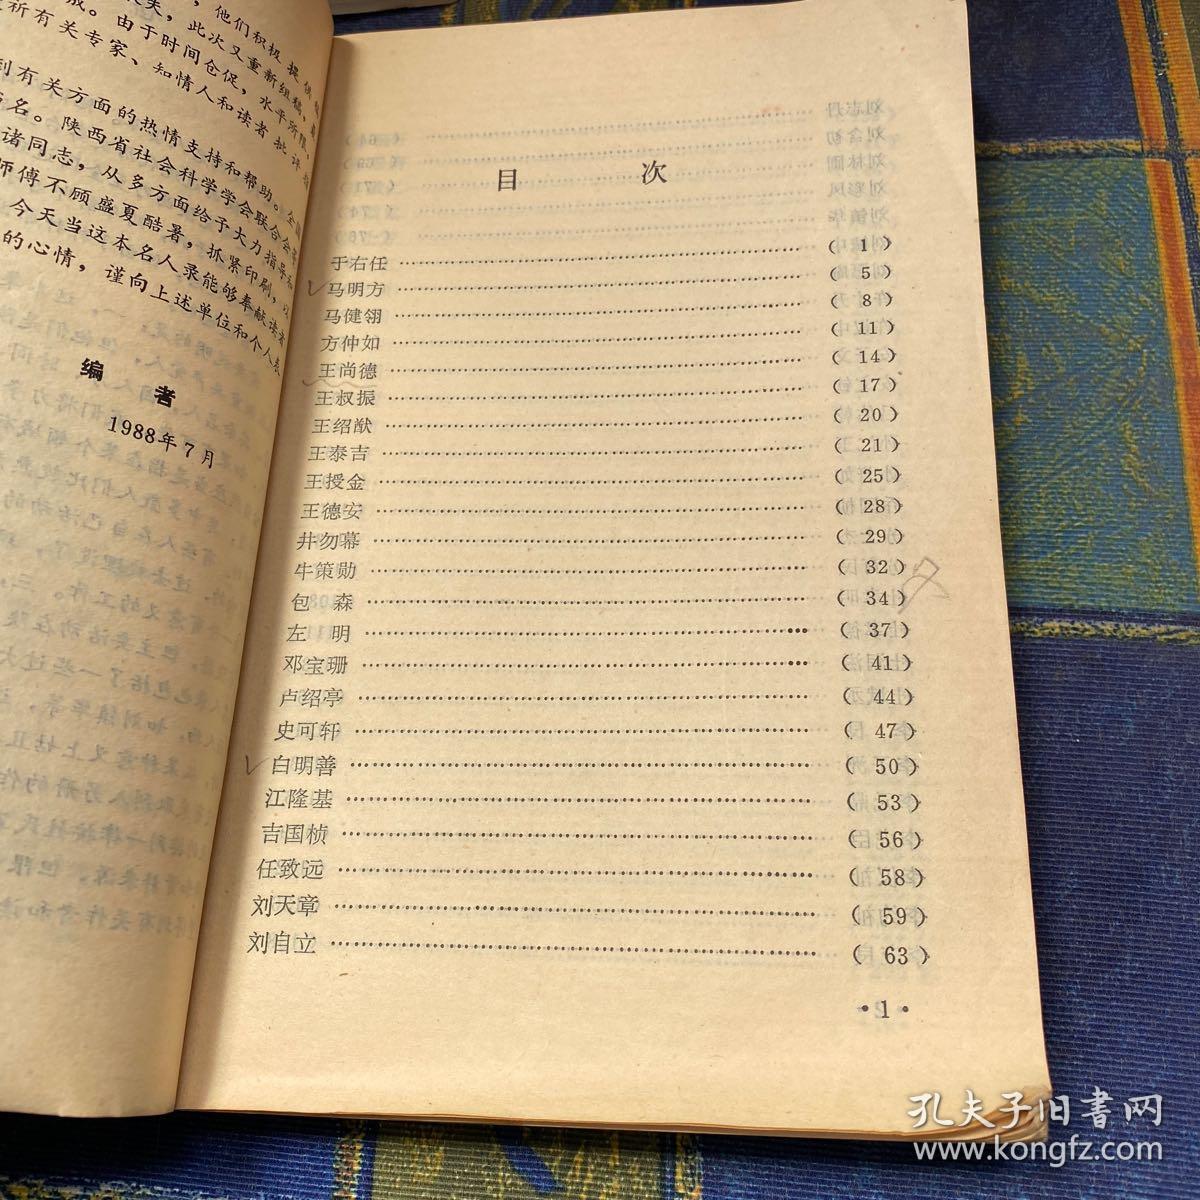 他们积极提供
此次又重新组稿
由于时间仓促，水平所限，
祈有关专家、知情人和读者批评指
到有关方面的热情支持和帮助。全国
名。陕西省社会科学学会联合会
诸同志，从多方面给予大力指导
师傅不顾盛夏酷署，抓紧印刷，
今天当这本名人录能够奉献读者
的心情，谨向上述单位和个人表
编者
1988年7月
目次
于右任 (1)
马明方 (5)
马健翎 (8)
方仲如 (11)
王尚德 (14)
王叔振 (17)
王绍猷 (20)
王泰吉 (21)
王授金 (25)
王德安 (28)
井勿幕 (29)
牛策勋 (32)
包森 (34)
左明 (37)
邓宝珊 (41)
卢绍亭 (44)
史可轩 (47)
白明善 (50)
江隆基 (53)
吉国桢 (56)
任致远 (58)
刘天章 (59)
刘自立 (63)
·1·
孔夫子旧書网
www.kongfz.com